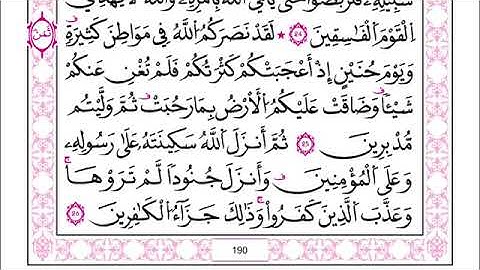 سَبِيلِهِۦ فَتَرَبَّصُوا۟ حَتَّىٰ يَأْتِىَ ٱللَّهُ بِأَمْرِهِۦ وَٱللَّهُ لَا يَهْدِى
ٱلْقَوْمَ ٱلْفَٰسِقِينَ 24 لَقَدْ نَصَرَكُمُ ٱللَّهُ فِى مَوَاطِنَ كَثِيرَةٍ
ثمن
وَيَوْمَ حُنَيْنٍ إِذْ أَعْجَبَتْكُمْ كَثْرَتُكُمْ فَلَمْ تُغْنِ عَنكُمْ
شَيْـًٔا وَضَاقَتْ عَلَيْكُمُ ٱلْأَرْضُ بِمَا رَحُبَتْ ثُمَّ وَلَّيْتُم
مُّدْبِرِينَ 25 ثُمَّ أَنزَلَ ٱللَّهُ سَكِينَتَهُۥ عَلَىٰ رَسُولِهِۦ
وَعَلَى ٱلْمُؤْمِنِينَ وَأَنزَلَ جُنُودًا لَّمْ تَرَوْهَا
وَعَذَّبَ ٱلَّذِينَ كَفَرُوا۟ وَذَٰلِكَ جَزَآءُ ٱلْكَٰفِرِينَ 26
190